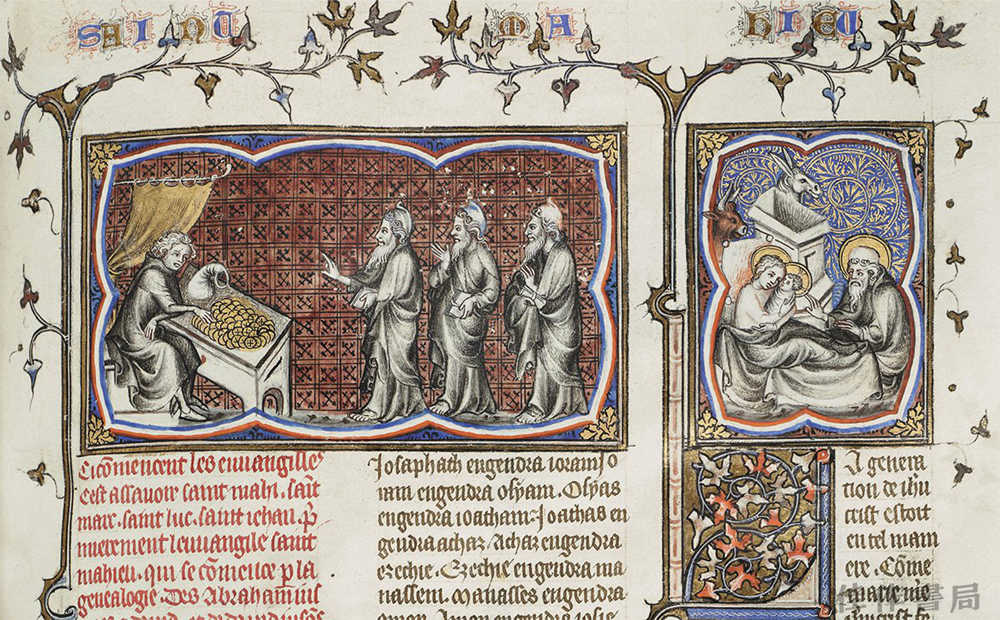 SAINT MAHIEU
Ci cõmencent les euuangilles
cest assauoir saint mahi. sãit
marc. saint luc. saint iehan. p̃
mierement leuuangile saint
mahieu. qui se cõmence p la
genealogie. Des Abraham
Josaphath engendra ioram Jo
ram engendra osyam. Osyas
engendra ioacham. Joathas en
gendra achaz. Achaz engendra
ezechie. Ezechie engendra ma
nassem. Manasses engendra
amon. Amon engendra iosie.
La genera
tion de ihũ
crist estoit
en tel mani
ere. Cõme
marie
佳作書局